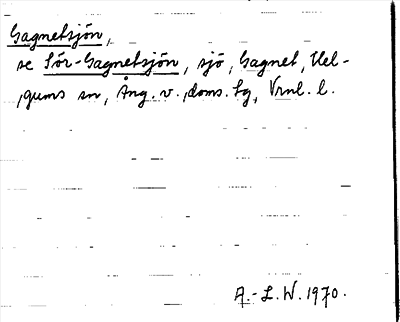 Gagnetsjön,
se Sör-Gagnetsjön, sjö, Gagnet, Hel-
gums sn, Ång. v. doms. tg, Vrnl. l.
A.-L.W. 1970.